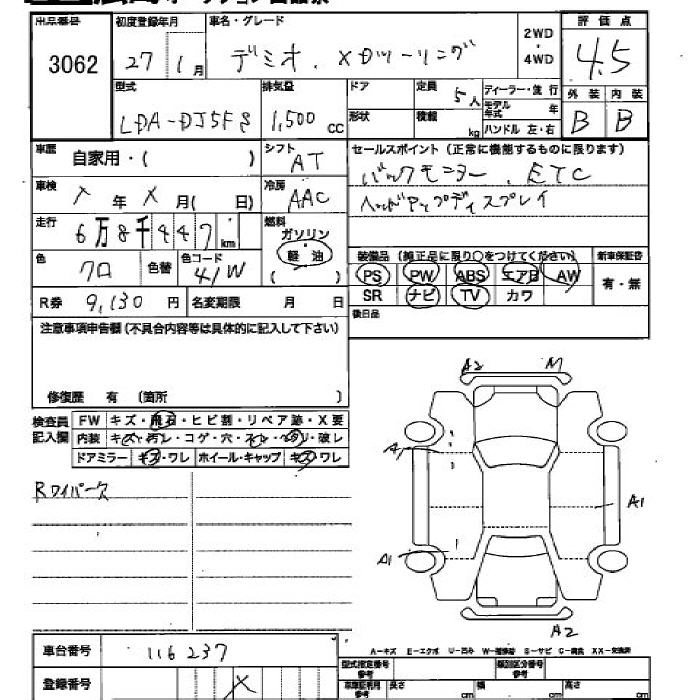 出品番号 初度登録年月 車名・グレード 2WD・4WD 評価点
3062 27 1月 デミオ. XDツーリング 4.5
型式 排気量 ドア 定員 5人 ディーラー・並行 外装 内装
LDA-DJ5FS 1,500cc 形状 積載 kg モデル年式 年 B B
ハンドル 左・右
車歴 自家用・( ) シフト AT セールスポイント(正常に機能するものに限ります)
バックモニター. ETC
車検 年 X月( 日) 冷房 AAC ヘッドアップディスプレイ
走行 6万8千447km 燃料 ガソリン・軽油 ( )
色 クロ 色替 色コード 41W 装備品(純正品に限り○をつけてください) 新車保証書
PS PW ABS エアB AW 有・無
R券 9,130円 名変期限 月 日 SR ナビ TV カワ
注意事項申告欄(不具合内容等は具体的に記入して下さい) 後日品
修復歴 有 (箇所 )
検査員記入欄 FW キズ・飛石・ヒビ割・リペア跡・X要
内装 キズ・汚レ・コゲ・穴・スレ・ヘリ・破レ
ドアミラー キズ・ワレ ホイール・キャップ キズ・ワレ
A2 M
A1
Rワイパー欠
A1
A1
A2
A-キズ E-エクボ U-凹み W-補修跡 S-サビ C-腐食 XX-交換済
車台番号 116237 型式指定番号 参考 類別区分番号 参考
登録番号 X 車庫証明用 参考 長さ cm 幅 cm 高さ cm